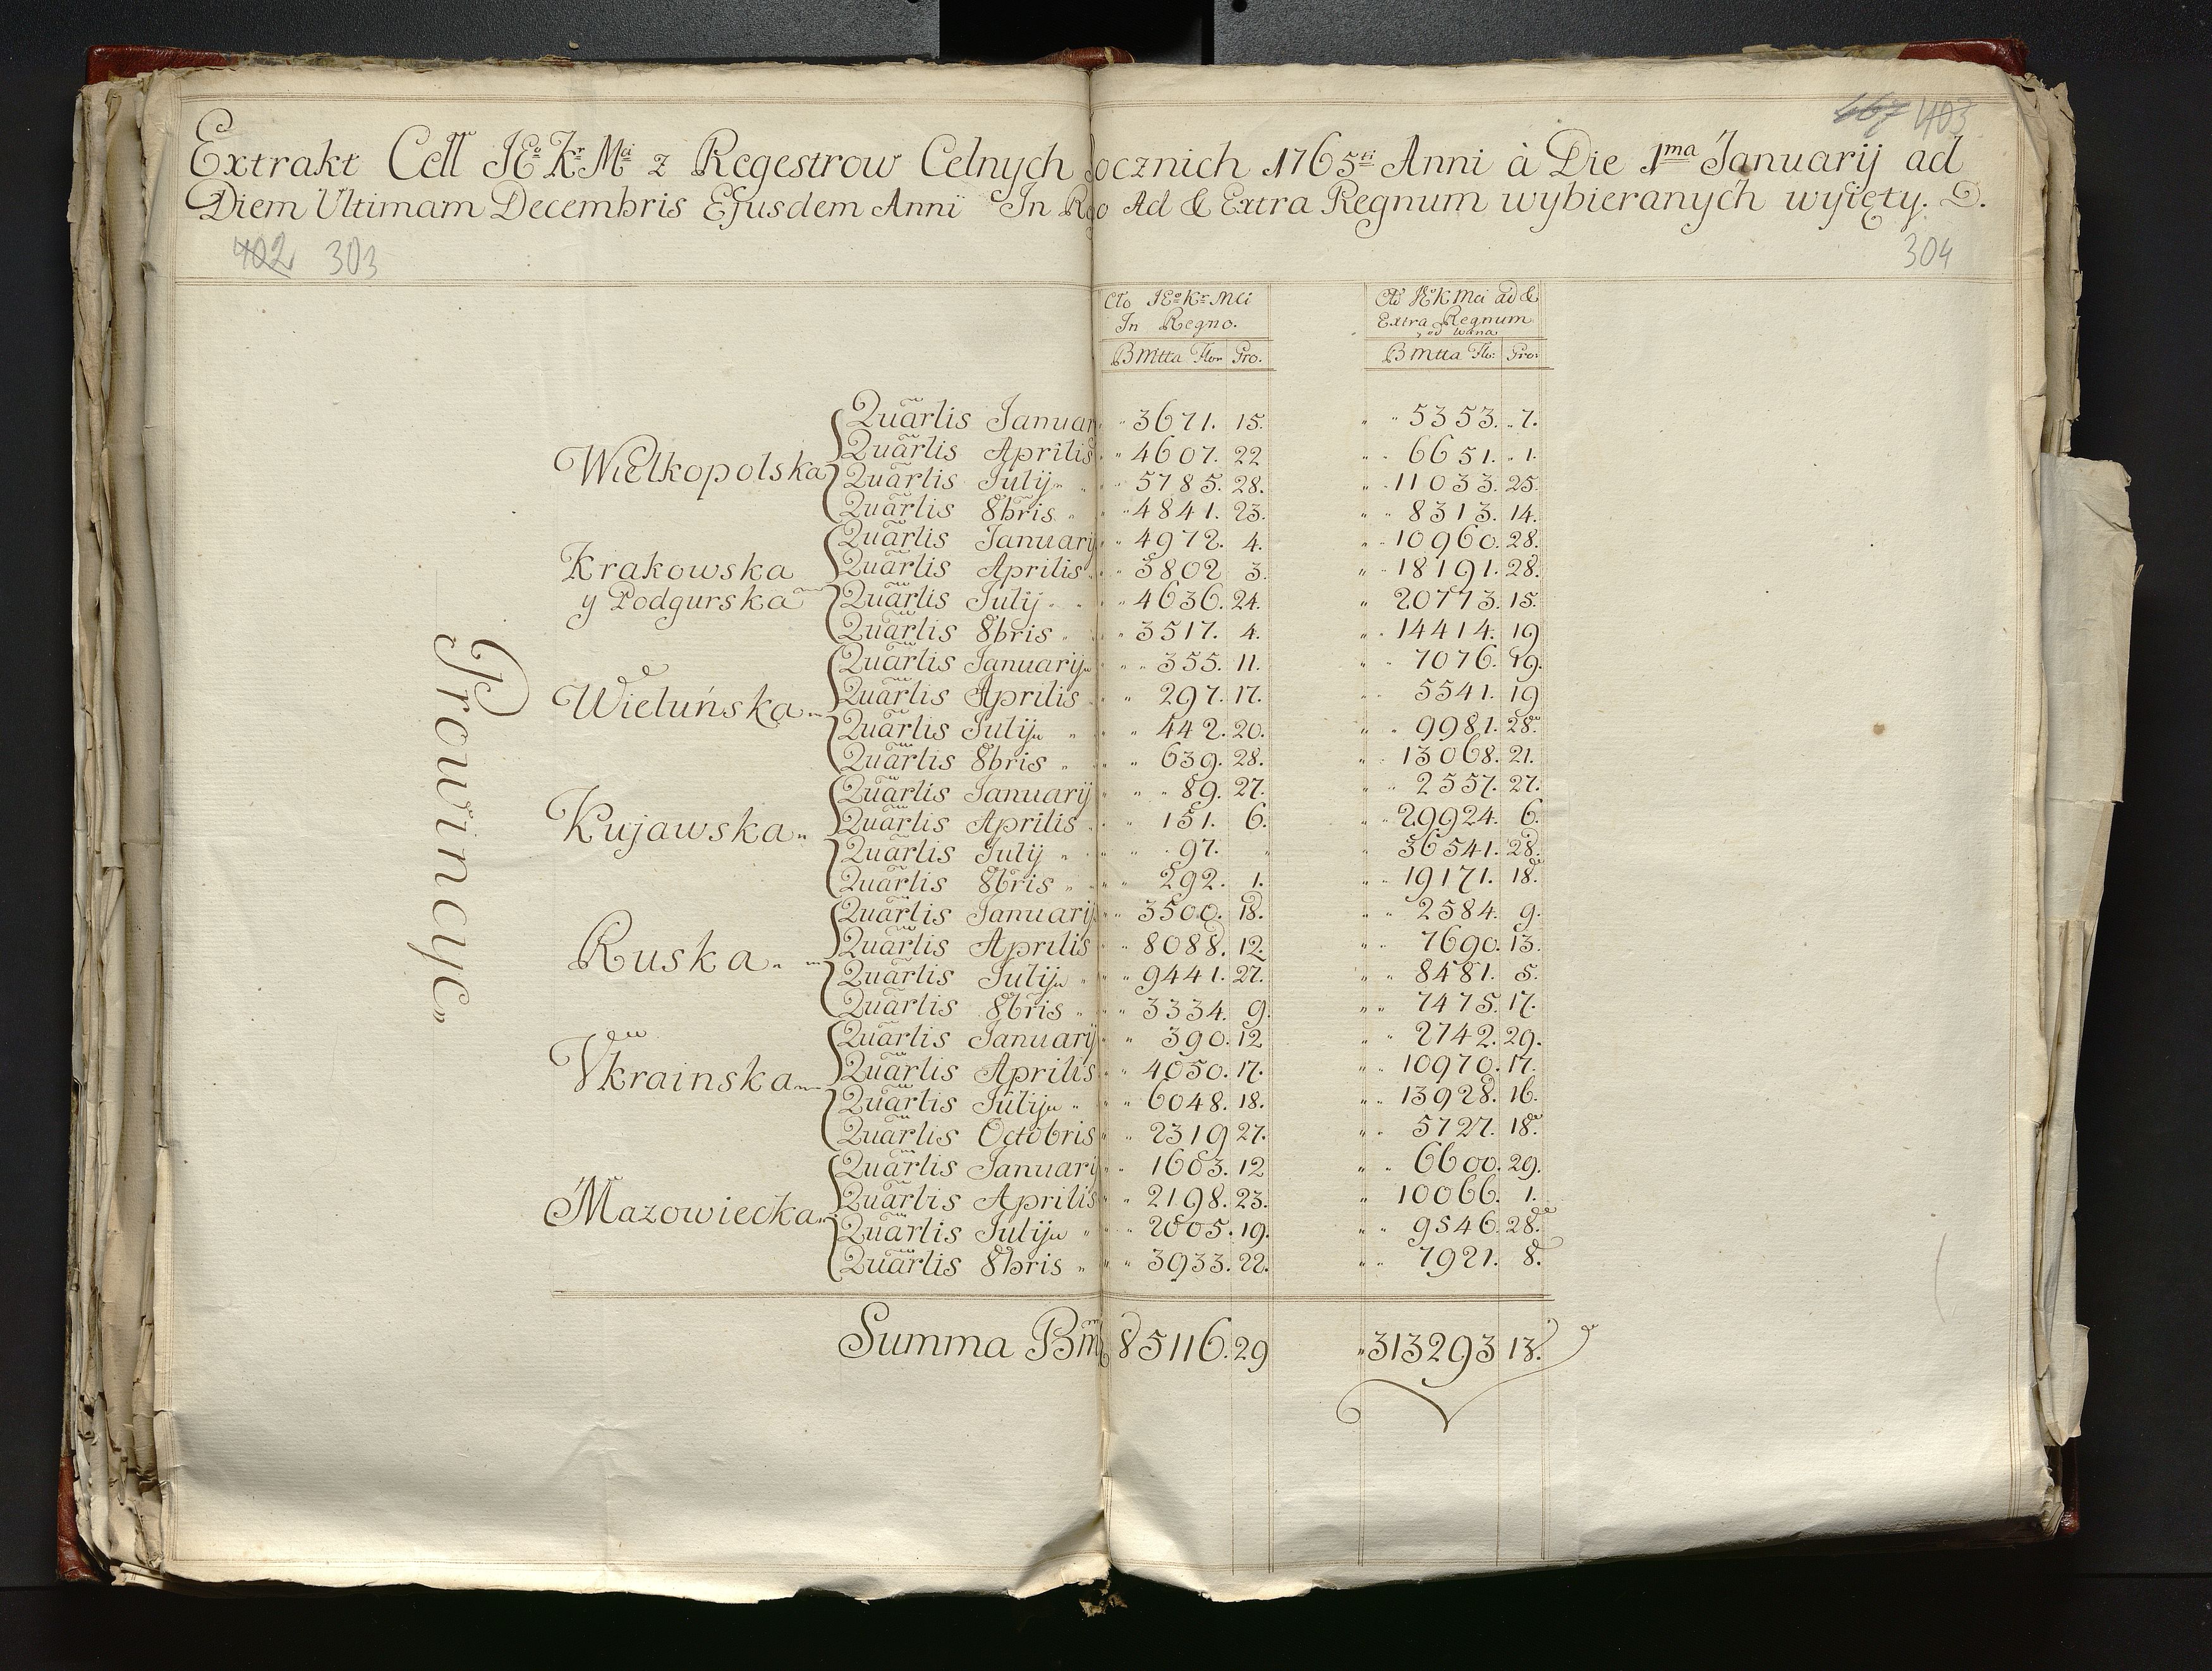 467 403
Extrakt Cell JEº Kr Mci z Regestrow Celnych ocznich 1765ti Anni à Die 1ma Januarij ad
Diem Ultimam Decembris Ejusdem Anni In Rgo Ad & Extra Regnum wybieranych wyięty. D.
402 303
304
Cło JEº Kr Mci
In Regno.
Bmtta Flor Gro.
Cło JEº K Mci ad &
Extra Regnum
Bmtta Flo: Gro:
Prowincye
Wielkopolska
Quartlis Januar 3671. 15. 5353. 7.
Quartlis Aprilis 4607. 22 6651. 1.
Quartlis Julij 5785. 28. 11033. 25.
Quartlis 8bris 4841. 23. 8313. 14.
Krakowska
y Podgurska
Quartlis Januarij 4972. 4. 10960. 28.
Quartlis Aprilis 3802 3. 18191. 28.
Quartlis Julij 4636. 24. 20773. 15.
Quartlis 8bris 3517. 4. 14414. 19
Wieluńska
Quartlis Januarij 355. 11. 7076. 19.
Quartlis Aprilis 297. 17. 5541. 19
Quartlis Julij 442. 20. 9981. 28.
Quartlis 8bris 639. 28. 13068. 21.
Kujawska
Quartlis Januarij 89. 27. 2557. 27.
Quartlis Aprilis 151. 6. 29924. 6.
Quartlis Julij 97. 36541. 28.
Quartlis 8bris 292. 1. 19171. 18.
Ruska
Quartlis Januarij 3500. 18. 2584. 9.
Quartlis Aprilis 8088. 12 7690. 13.
Quartlis Julij 9441. 27. 8481. 5.
Quartlis 8bris 3334. 9. 7475. 17.
Vkrainska
Quartlis Januarij 390. 12 2742. 29.
Quartlis Aprilis 4050. 17. 10970. 17.
Quartlis Julij 6048. 18. 13928. 16.
Quartlis Octobris 2319 27. 5727. 18.
Mazowiecka
Quartlis Januarij 1603. 12 6600. 29.
Quartlis Aprilis 2198. 23. 10066. 1.
Quartlis Julij 2605. 19. 9546. 28.
Quartlis 8bris 3933. 22. 7921. 8.
Summa Bm 85116. 29 313293 18.